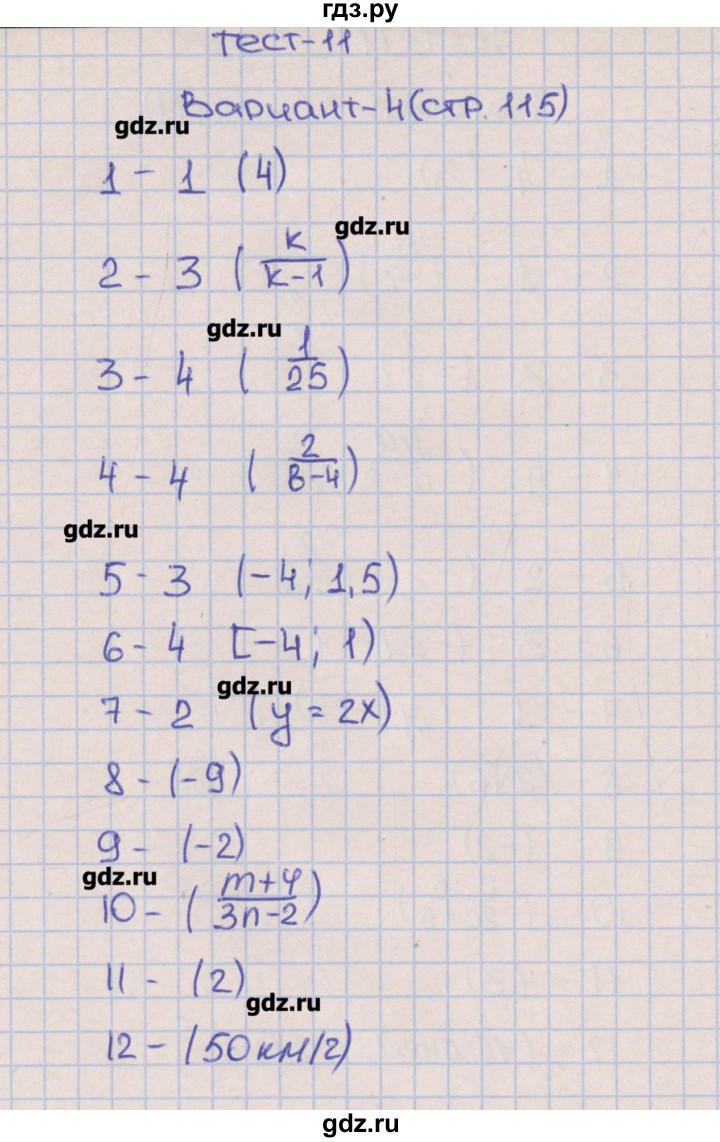 гдз.ру
Тест-11
Вариант-4(стр. 115)
gdz.ru
1 - 1 (4)
gdz.ru
2 - 3 ( k/(k-1) )
gdz.ru
3 - 4 ( 1/25 )
4 - 4 ( 2/(в-4) )
gdz.ru
5 - 3 (-4; 1,5)
6 - 4 [-4; 1)
gdz.ru
7 - 2 (y = 2x)
8 - (-9)
9 - (-2)
gdz.ru
10 - ( (m+4)/(3n-2) )
11 - (2)
gdz.ru
12 - (50 км/г)
gdz.ru